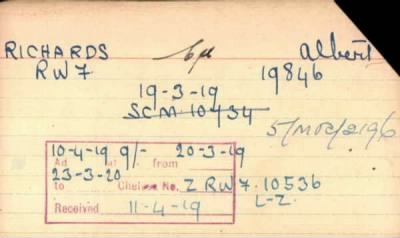 RICHARDS Cpl Albert
RWF 19846
19-3-19
SCM 10434
5/MR/2196
10-4-19 9/- 20-3-19
Ad at from
23-3-20
to Chelsea No. Z RWF 10536
L-Z.
Received 11-4-19